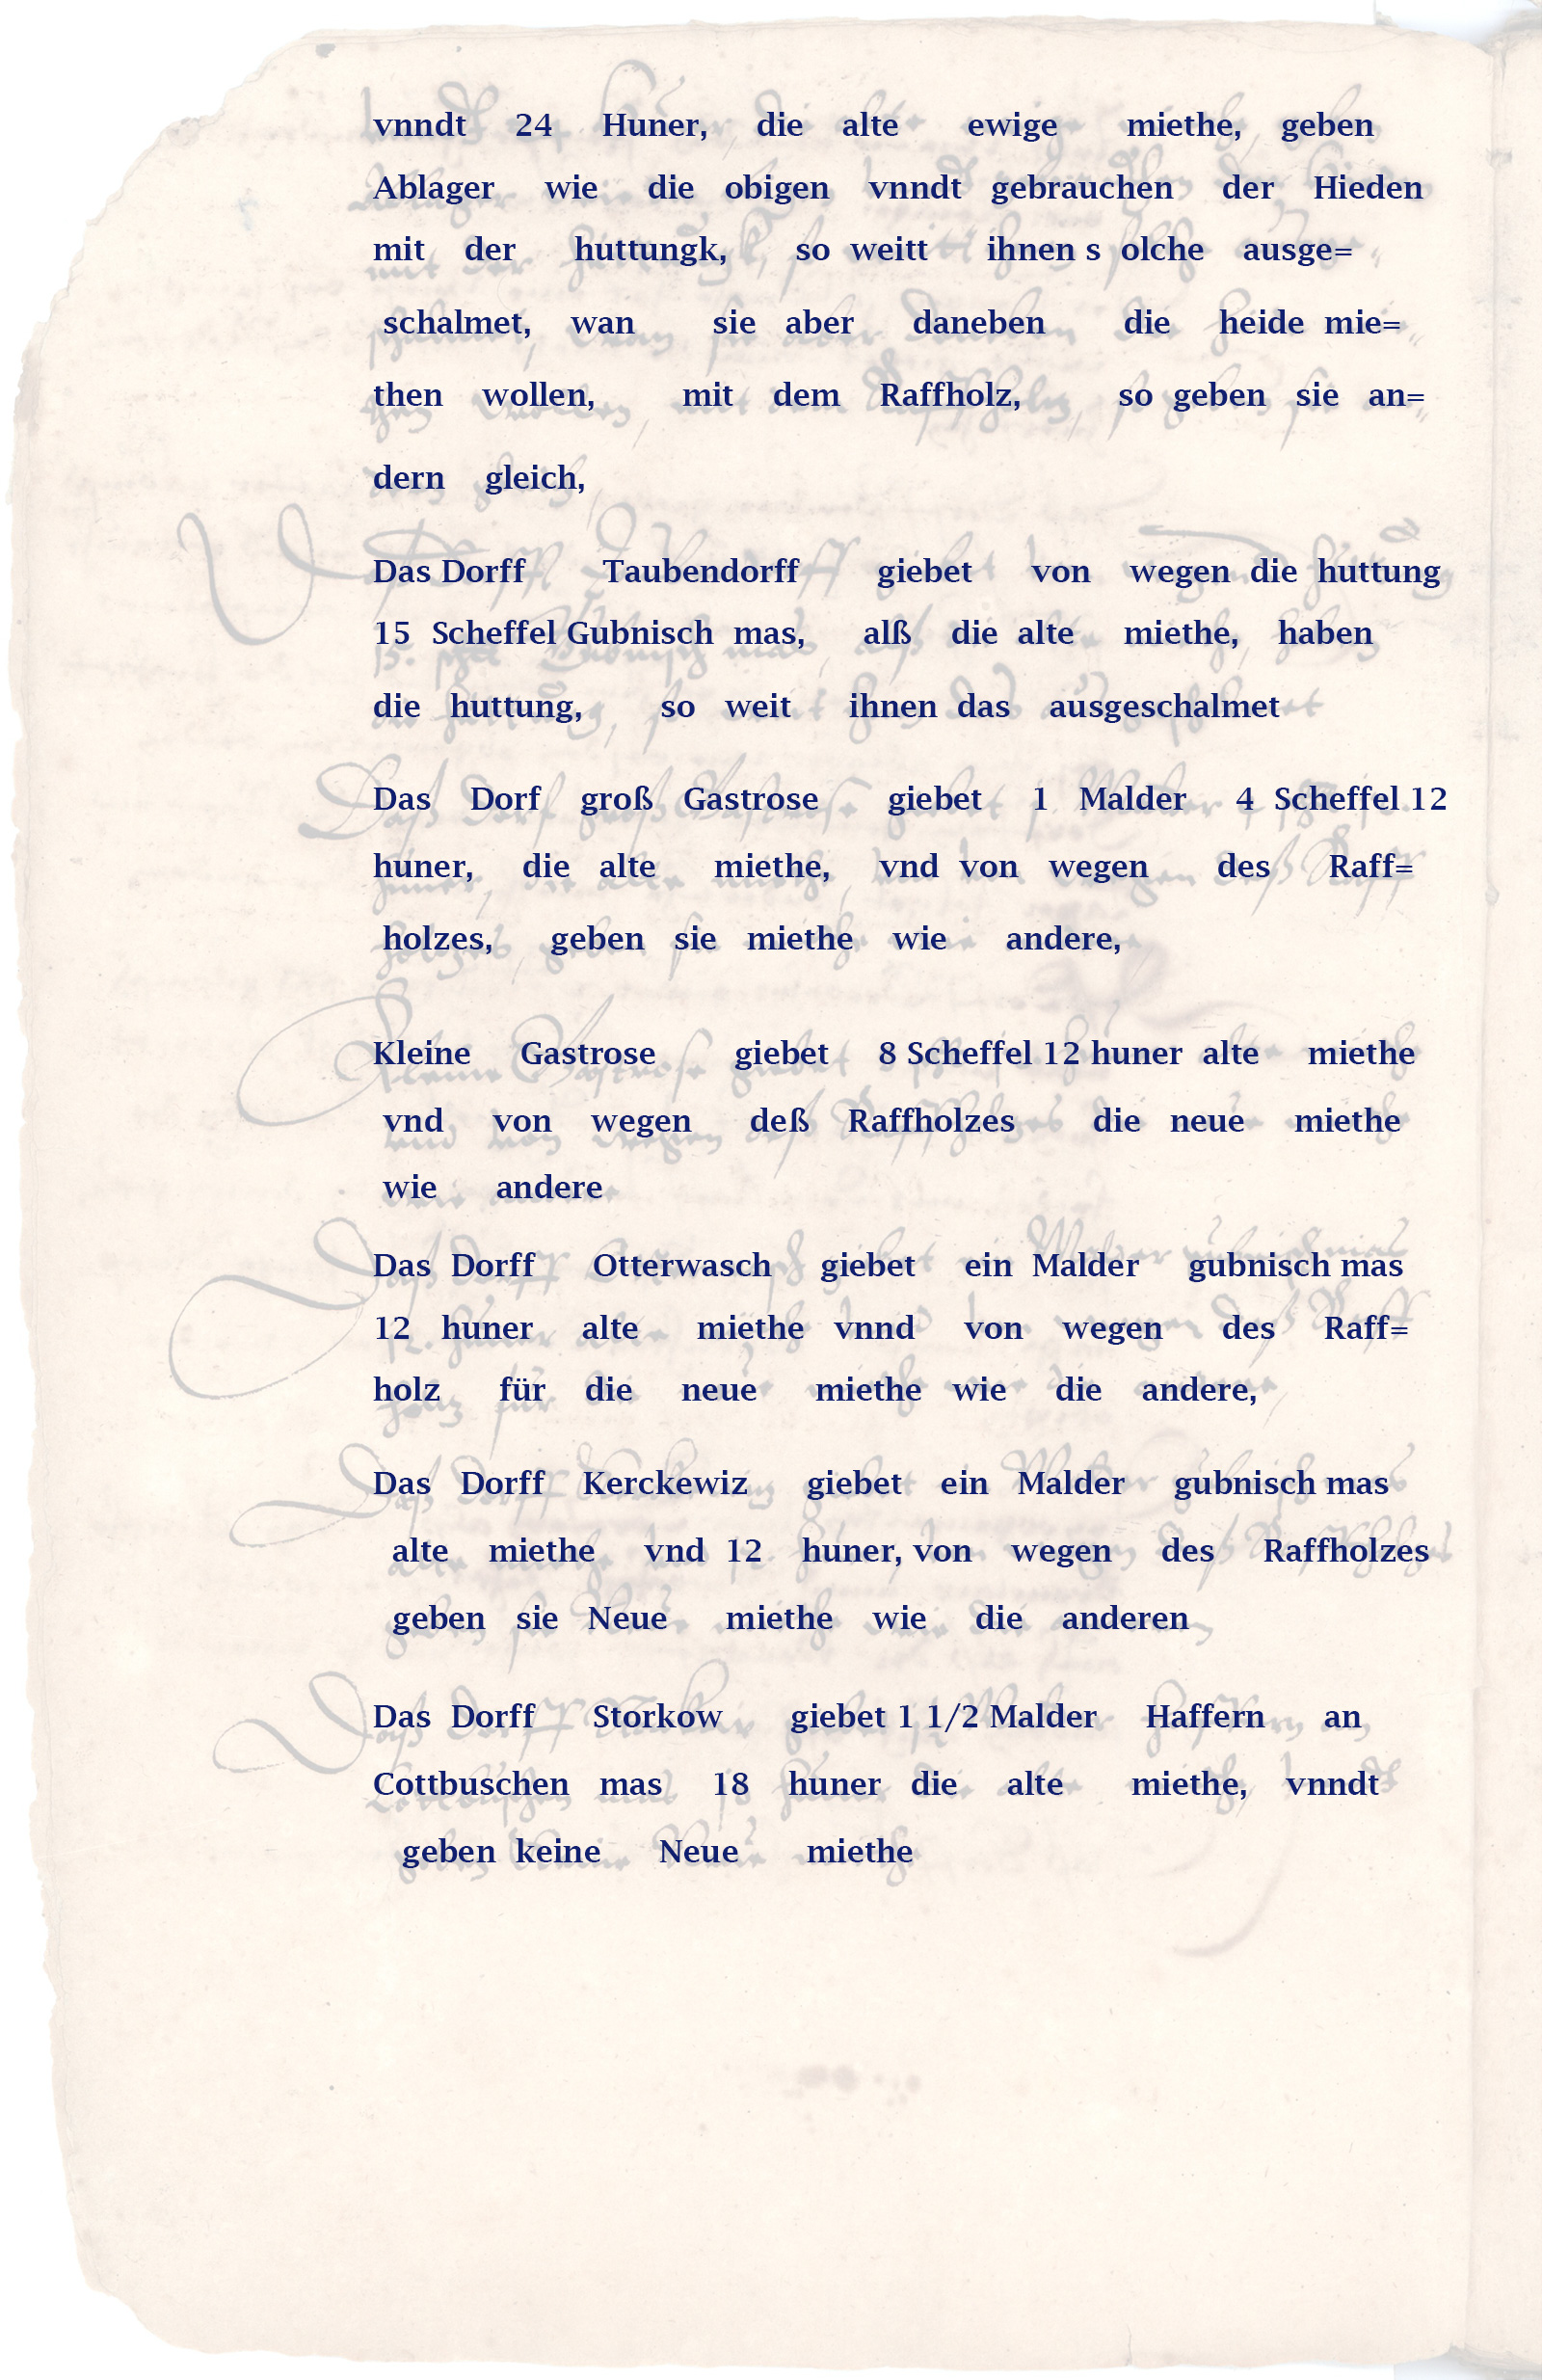 vnndt 24 Huner, die alte ewige miethe, geben
Ablager wie die obigen vnndt gebrauchen der Hieden
mit der huttungk, so weitt ihnen s olche ausge=
schalmet, wan sie aber daneben die heide mie=
then wollen, mit dem Raffholz, so geben sie an=
dern gleich,
Das Dorff Taubendorff giebet von wegen die huttung
15 Scheffel Gubnisch mas, alß die alte miethe, haben
die huttung, so weit ihnen das ausgeschalmet
Das Dorf groß Gastrose giebet 1 Malder 4 Scheffel 12
huner, die alte miethe, vnd von wegen des Raff=
holzes, geben sie miethe wie andere,
Kleine Gastrose giebet 8 Scheffel 12 huner alte miethe
vnd von wegen deß Raffholzes die neue miethe
wie andere
Das Dorff Otterwasch giebet ein Malder gubnisch mas
12 huner alte miethe vnnd von wegen des Raff=
holz für die neue miethe wie die andere,
Das Dorff Kerckewiz giebet ein Malder gubnisch mas
alte miethe vnd 12 huner, von wegen des Raffholzes
geben sie Neue miethe wie die anderen
Das Dorff Storkow giebet 1 1/2 Malder Haffern an
Cottbuschen mas 18 huner die alte miethe, vnndt
geben keine Neue miethe